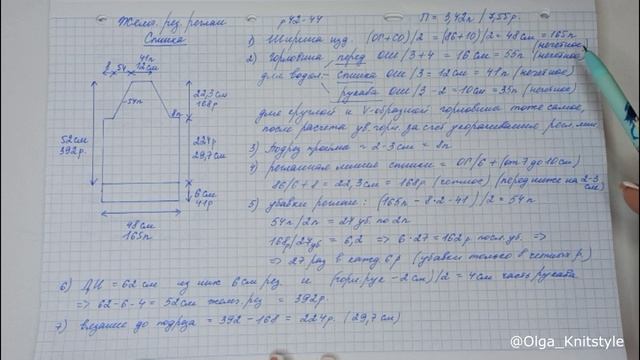 Женск. рез. реглан
Спинка
р 42-44
П = 3,42п / 7,55р.
1) Ширина изд. (ОГ+СО)/2 = (86+10)/2 = 48 см = 165п
(нечетное)
2) Горловина перед ОШ/3+4 = 16 см = 55п (нечетное)
для водол. - спинка ОШ/3 = 12см = 41п (нечетное)
рукава ОШ/3-2 = 10см = 35п (нечетное)
для круглой и V-образной горловина тоже самое,
после расчета ув. гор. за счет укорачивания регл. лин.
3) Подрез пройма = 2-3 см = 8п
4) регланная линия спинки = ОГ/6 + (от 7 до 10см)
86/6+8 = 22,3 см = 168р (четное) (перед ниже на 2-3 см)
5) убавки реглан: (165п - 8·2 - 41)/2 = 54п
54п/2п = 27 уб. по 2п
168р/27уб = 6,2 ⇒ 6·27 = 162р посл. уб. ⇒
⇒ 27 раз в кажд 6р (убавки только в четных р.)
6) ДИ = 62 см из них 6 см рез и (горл. рук - 2см)/2 = 4см часть рукава
⇒ 62-6-4 = 52см женск. рез = 392р.
7) вязание до подреза = 392 - 168 = 224р. (29,7см)
41п
8 54 12см
54п
8п
22,3см
168р
52см
392р.
224р
29,7см
6см
41р
48см
165п
@Olga_Knitstyle